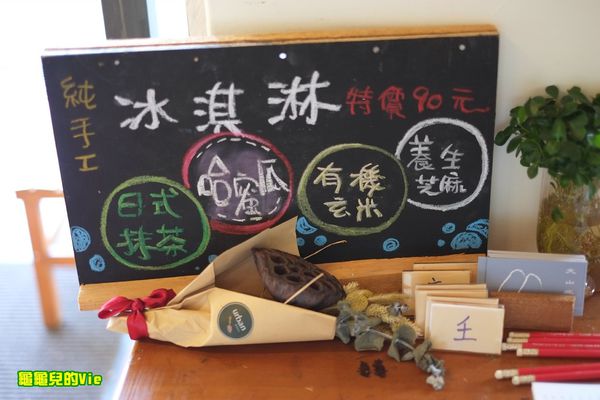 純手工
冰淇淋 特價90元
日式
抹茶
哈蜜瓜
有機
玄米
養生
芝麻
urban
壬
龜龜兒的Vie